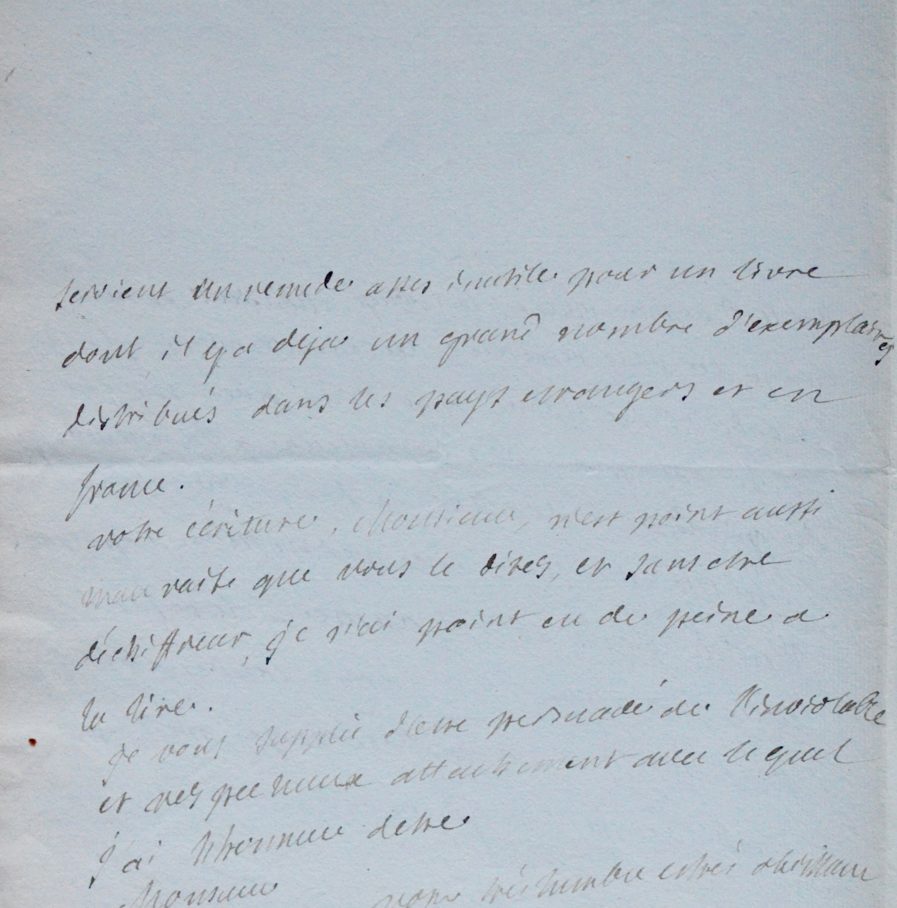 seroient un remede assez inutile pour un livre
dont il y a deja un grand nombre d'exemplaires
distribués dans les pays etrangers et en
france.
votre écriture, Monsieur, n'est point aussi
mauvaise que vous le dites, et sans etre
déchiffreur, je n'ai point eu de peine a
la lire.
je vous supplie d'etre persuadé de l'inviolable
et respectueux attachement avec lequel
j'ai l'honneur detre
Monsieur
votre très humble et très obéissant